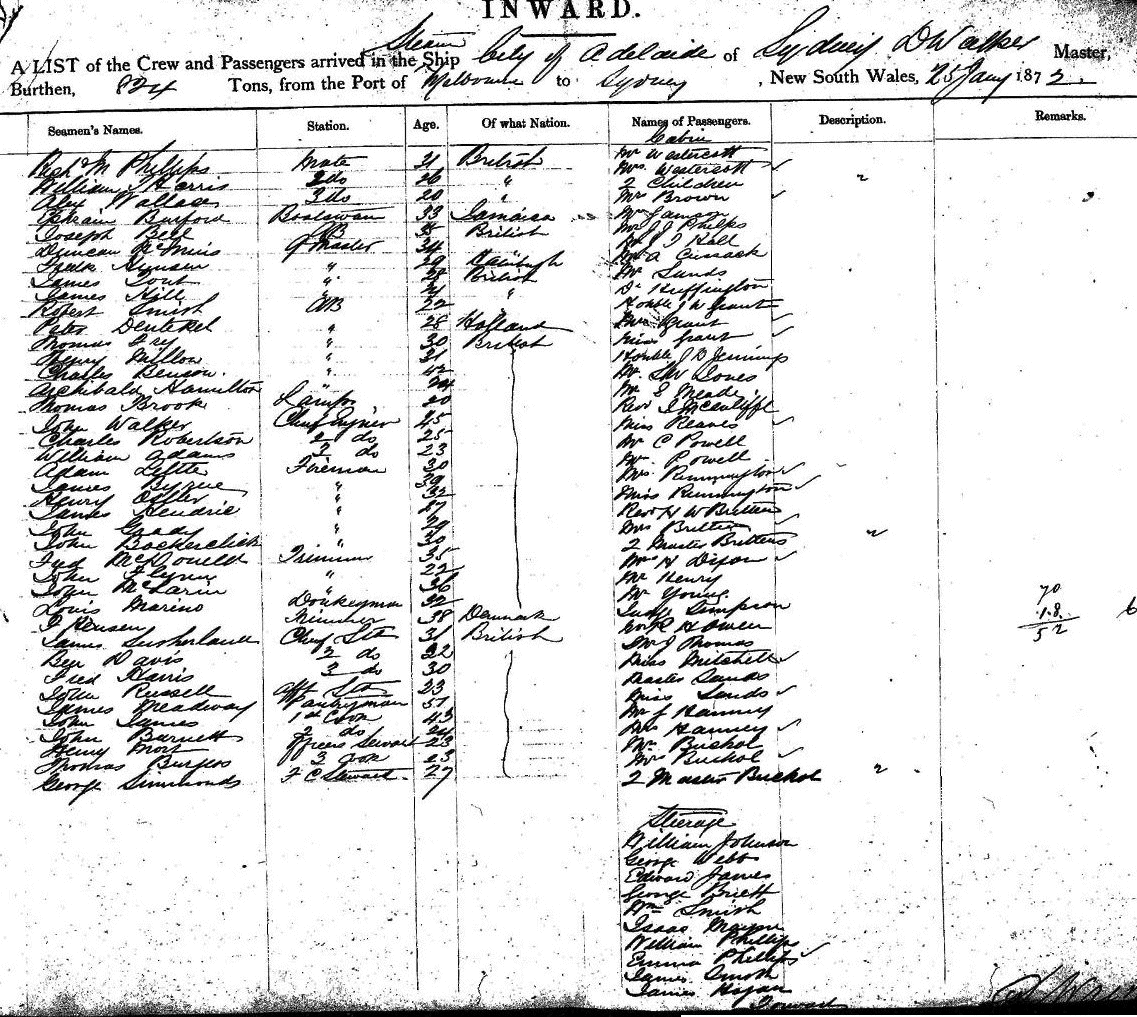 INWARD.
A LIST of the Crew and Passengers arrived in the Steam Ship City of Adelaide of Sydney D Walker Master,
Burthen, 824 Tons, from the Port of Melbourne to Sydney, New South Wales, 25 Jany 1872.
Seamen's Names. Station. Age. Of what Nation. Names of Passengers. Description. Remarks.
Cabin
Phillips Mate 31 British Mr Westercott
William Harris 2 do 26 " Mrs Westercott
Alex Wallace 3 do 20 " 2 Children "
Burford Boatswain 33 Jamaica Mr Brown
Joseph Bell AB 35 British Mr
Duncan Q Master 34 Mr J J Phelps
Mr J J Hall
" 29 Mr A Cusack
James " 28 British Mr Sands
James Hill " 31 " Dr Huffington
Robert Smith AB 22 Honble J W Grant
Peter " 28 Holland Mrs Grant
Thomas " 30 British Miss Grant
Henry " 31 Honble J D Jennings
Charles Benson " 42 Mr Jones
Archibald Hamilton 24 Mr S Meade
Thomas Brook Lamps 20 Revd J
John Walker Chief Enjner 45 Miss Reaves
Charles Robertson 2 do 25 Mr C Powell
William Adams 3 do 23 Mr Powell
Adam Little Fireman 30 Mrs Runnington
James Byrne " 39 Miss Runnington
Henry " 32 Revd H W Britten
James Hendrie " 27 Mrs Britten
John Grady " 29 2 Master Brittens "
John " 30 H Dixon
McDonell Trimmer 35 Mr Henry
John Flynn " 22 Mr Young
John McLarin " 36 Judge Simpson
Louis Marino Donkeyman 32 H Owen
J Hensen Trimmer 38 Denmark Mr J Thomas
James Sutherland Chief Std 31 British Miss Mitchell
Ben Davis 2 do 22 Master Sands
Fred Harris 3 do 30 Miss Sands
John Russell Std 23 Mr J Hanney
James Meadway Pantryman 51 Mrs Hanney
John James 1st Cook 43 Mr Buchol
John Barnett 2 do 24 Mrs Buchol
Henry Mort 23 2 Master Buchol "
Thomas Burgess 3 Cook 23
George Simmonds F C Stewart 27
70
18
52
6
Steerage
William Johnson
George Webb
Edward James
George Brett
Wm Smith
Isaac
William Phillips
Emma Phillips
James Smith
James Hogan